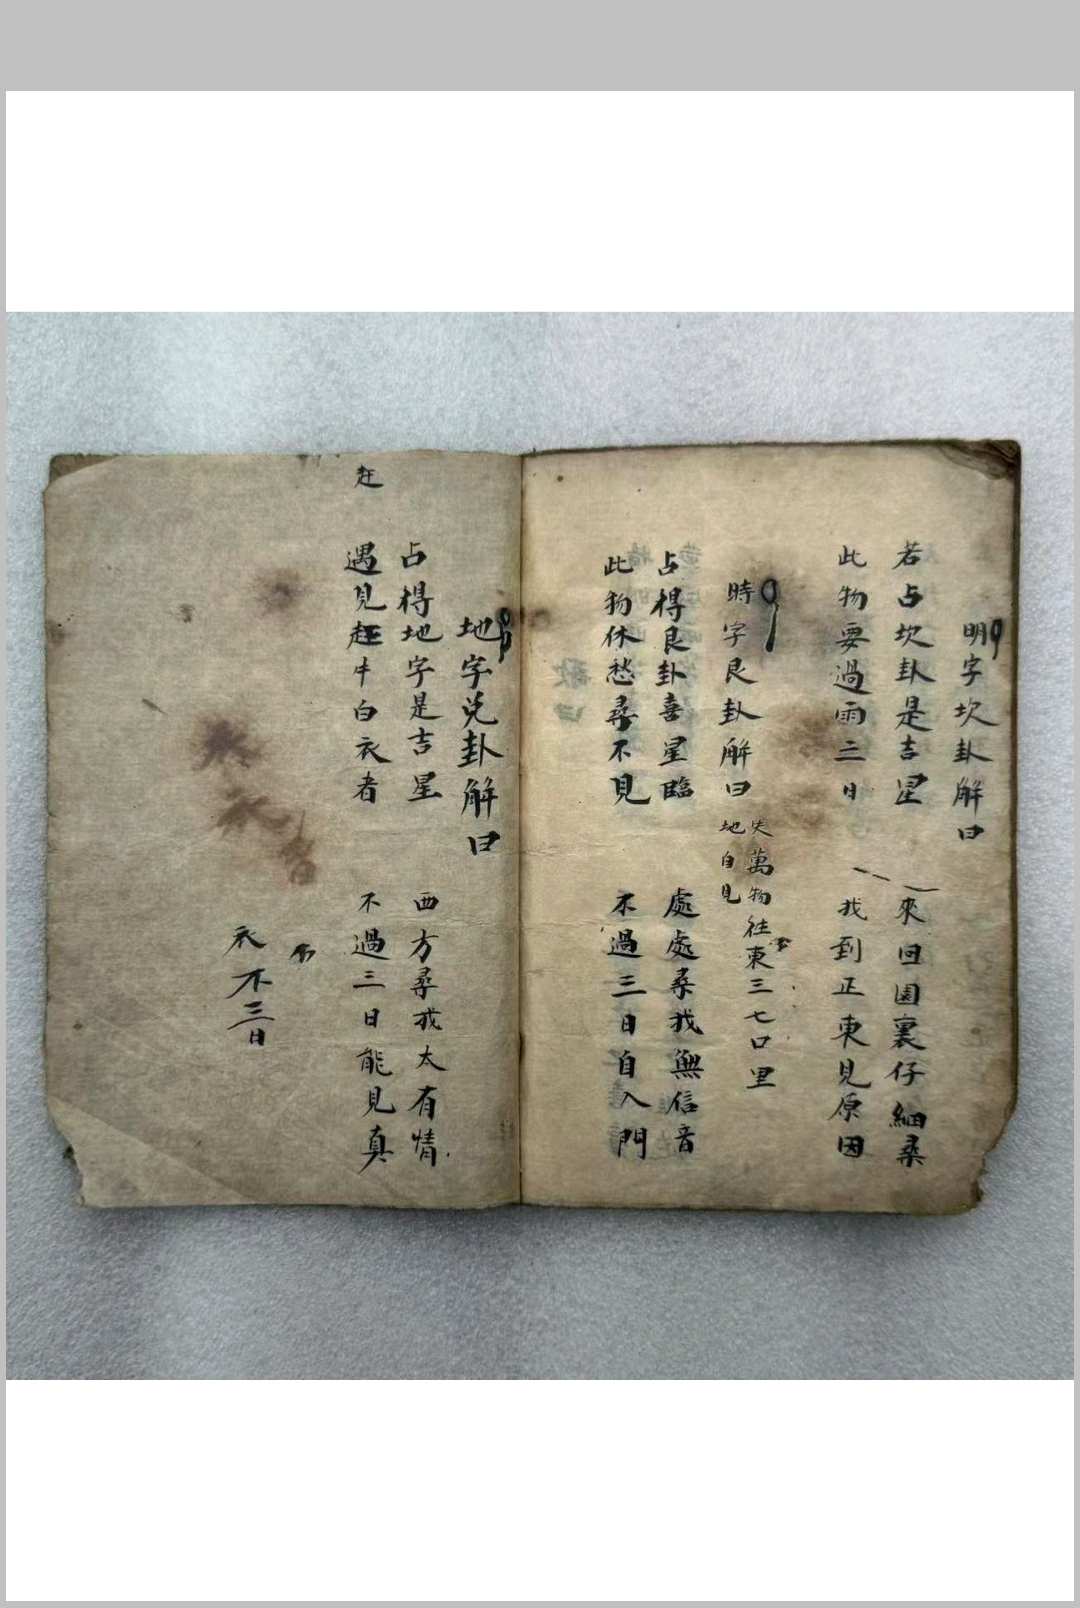 明字坎卦解曰
若占坎卦是吉星 來回园裏仔細桑
此物要過雨三日 找到正東見原因
時字艮卦解曰
失萬物往東三七口里
地自見
占得艮卦喜星臨 處處桑找無信音
此物休愁尋不見 不過三日自入門
地字兑卦解曰
占得地字是吉星 西方尋找太有情
遇見赶牛白衣者 不過三日能見真
赶
衣不三日